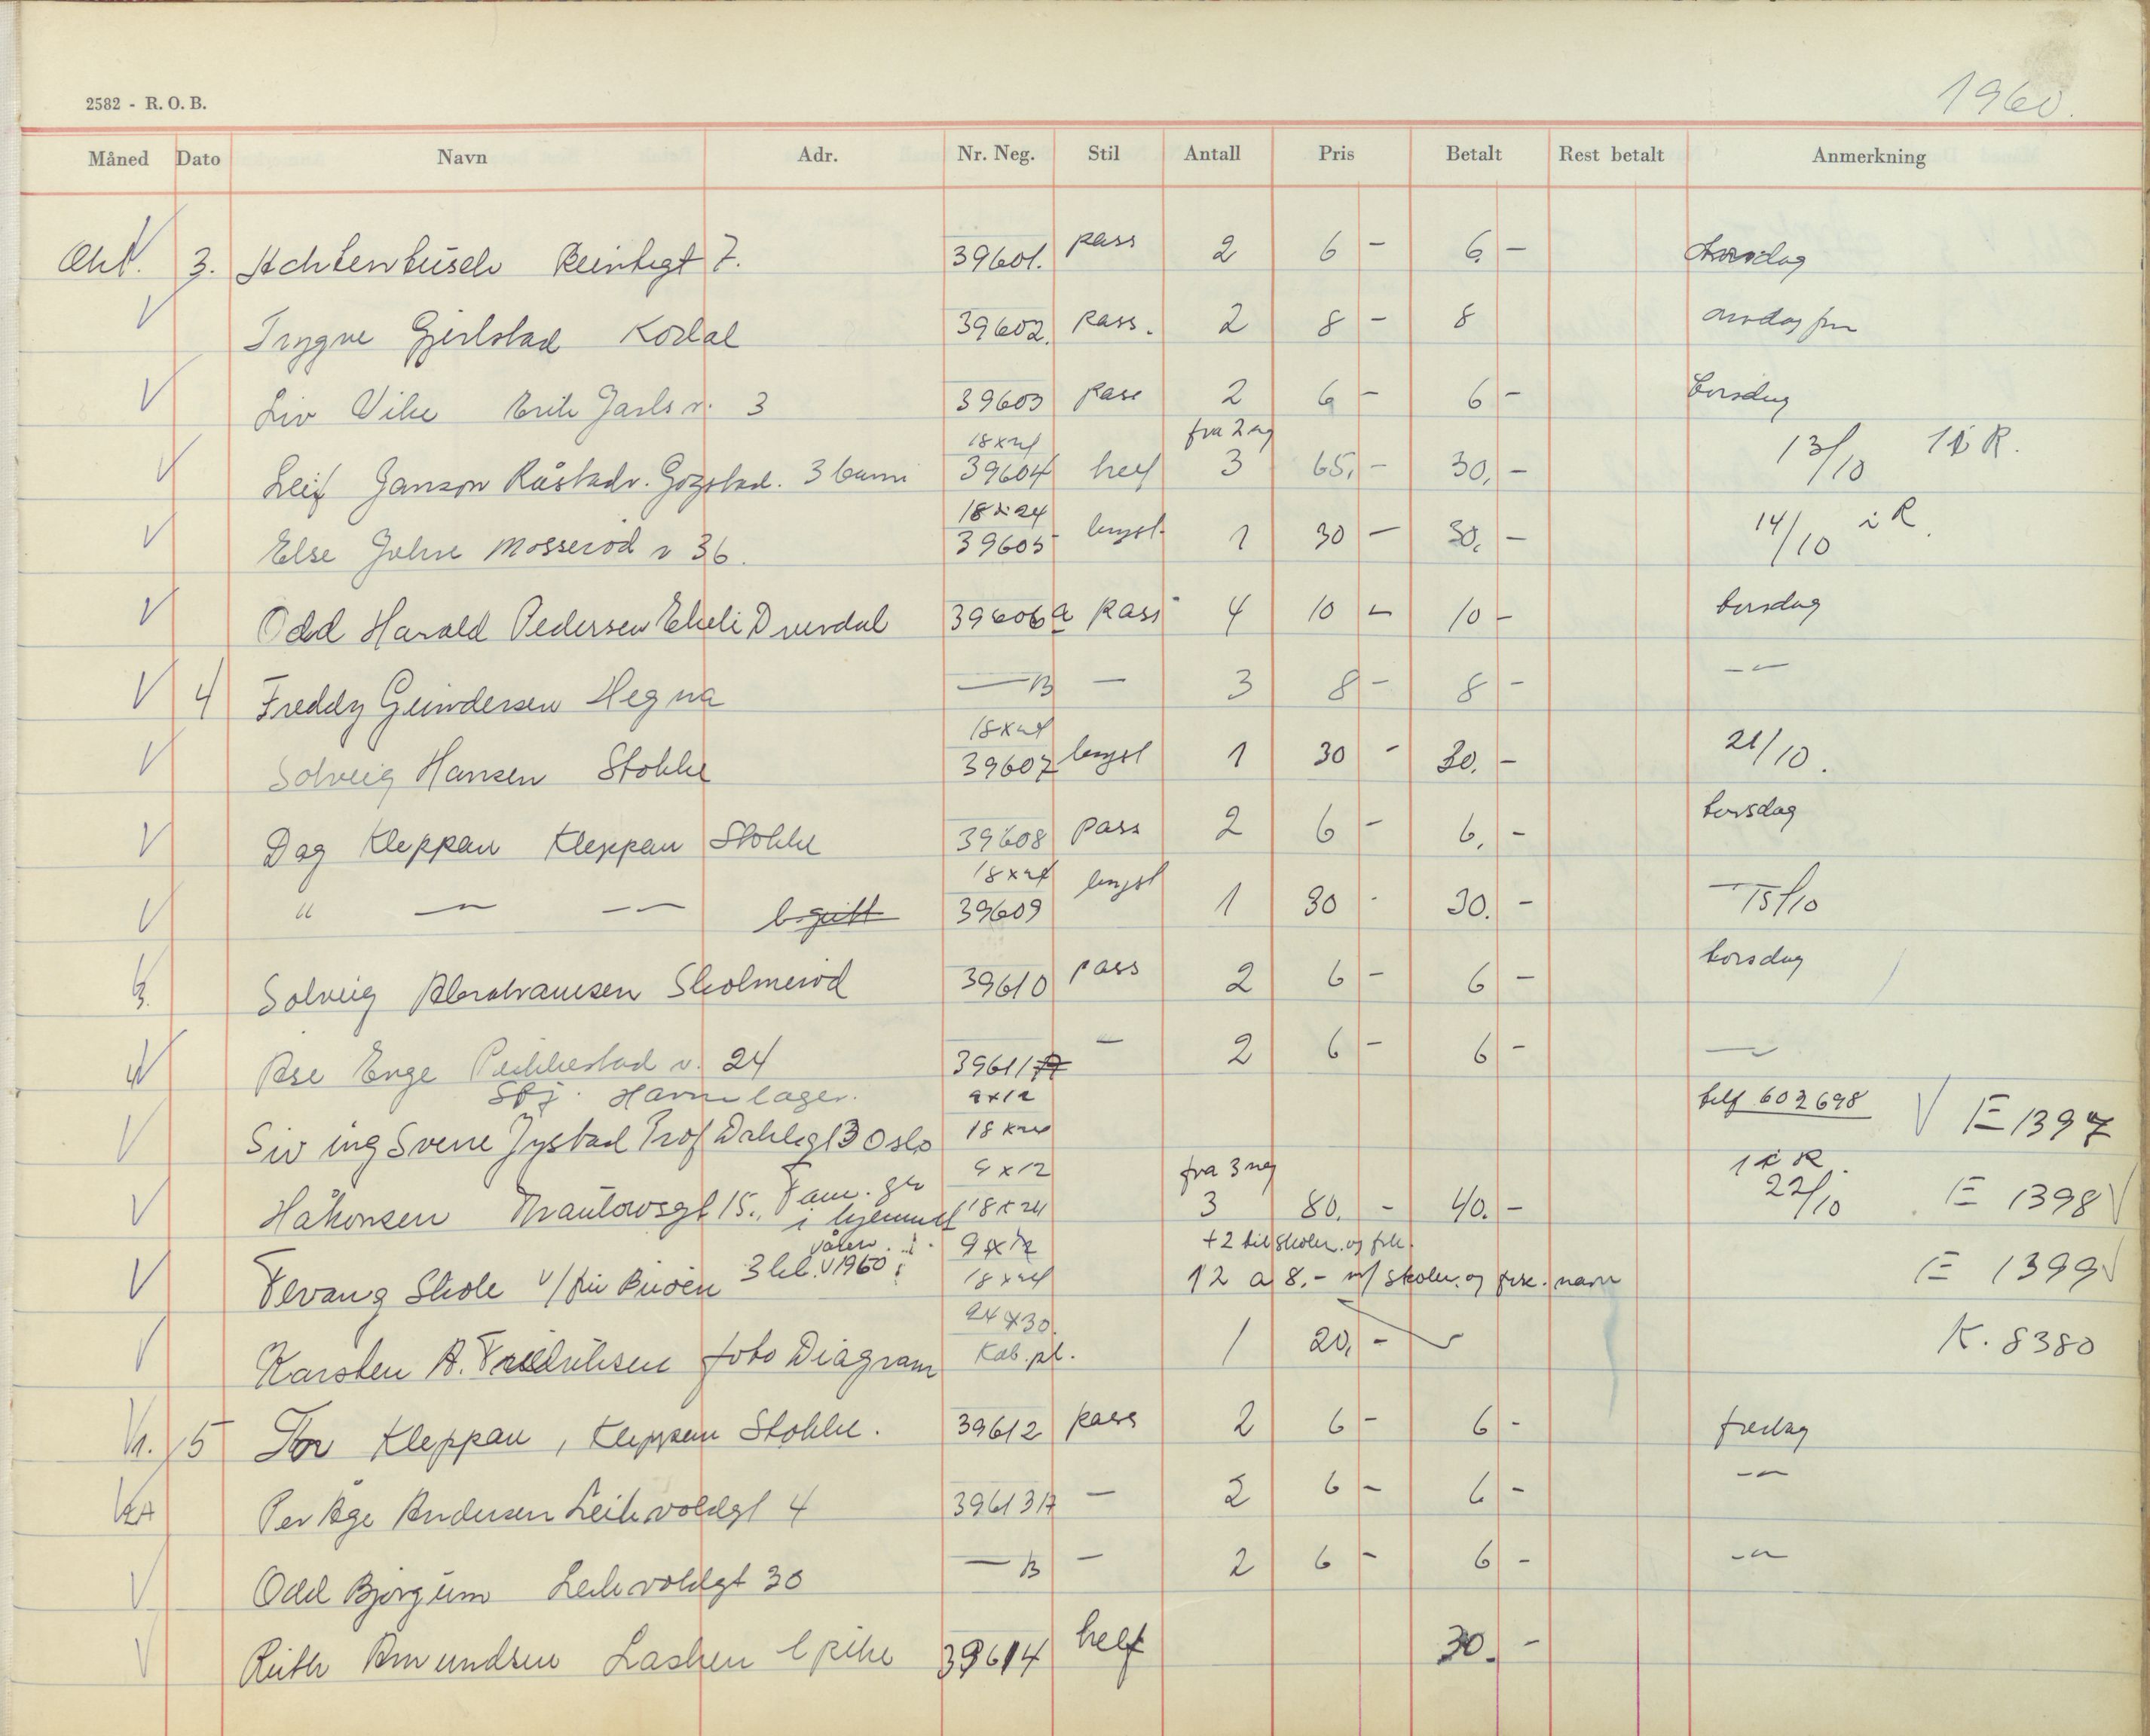 1960.
2582 - R. O. B.
Måned Dato Navn Adr. Nr. Neg. Stil Antall Pris Betalt Rest betalt Anmerkning
Okt. 3. 7. 39601. pass 2 6 - 6. -
Trygve Gjerlstad Kodal 39602. pass. 2 8 - 8 onsdag
Liv Vike Erik Jarls v. 3 39603 pass 2 6 - 6 - torsdag
18x24 fra 2 ng
Leif Janson Råstadv. Gogstad. 3 barn 39604 helf 3 65, - 30, - 13/10 R.
18x24
Else Johre Mosserød v 36. 39605 bryst. 1 30 - 30, - 14/10 i R.
Odd Harald Pedersen Ekeli 39606a pass 4 10 - 10 - torsdag
4 Freddy Gundersen Hegna — B — 3 8 - 8 - —"—
18x24
Solveig Hansen Stokke 39607 bryst 1 30 - 30. - 21/10.
Dag Kleppan Kleppan Stokke 39608 pass 2 6 - 6, - torsdag
18x24
" —"— —"— 39609 bryst 1 30 - 30. - 15/10
Solveig Abrahamsen Skolmerød 39610 pass 2 6 - 6 - torsdag
Åse Enge Pukkestad v. 24 39611 — 2 6 - 6 - —
Sfj. Havnelager. 9x12 telf 602698
Siv ing Sverre Jystad Prof Dahlsgt 3 Oslo 18x24 E 1397
9x12 fra 3 neg 1 i R.
Håkonsen Thaulowsgt 15., Fam. gr 18x24 3 80. - 40. - 22/10 E 1398
i hjemmet
våren 9x12 +2 til skolen og frk.
Fevang Skole v/ frk Buøen 3 kl. 1960 18x24 12 a 8.- m/ skolen og frk. navn E 1399
24x30.
Karsten A. Fredriksen foto Diagram Kab. pl. 1 20, - K. 8380
5 Tor Kleppan, Kleppan Stokke. 39612 pass 2 6 - 6 - fredag
Per Åge Andersen Leikvoldgt 4 39613A — 2 6 - 6 - —"—
Odd Bjørgum Leikvoldgt 30 — B — 2 6 - 6 - —"—
Ruth Amundsen Lasken 39614 helf 30. -